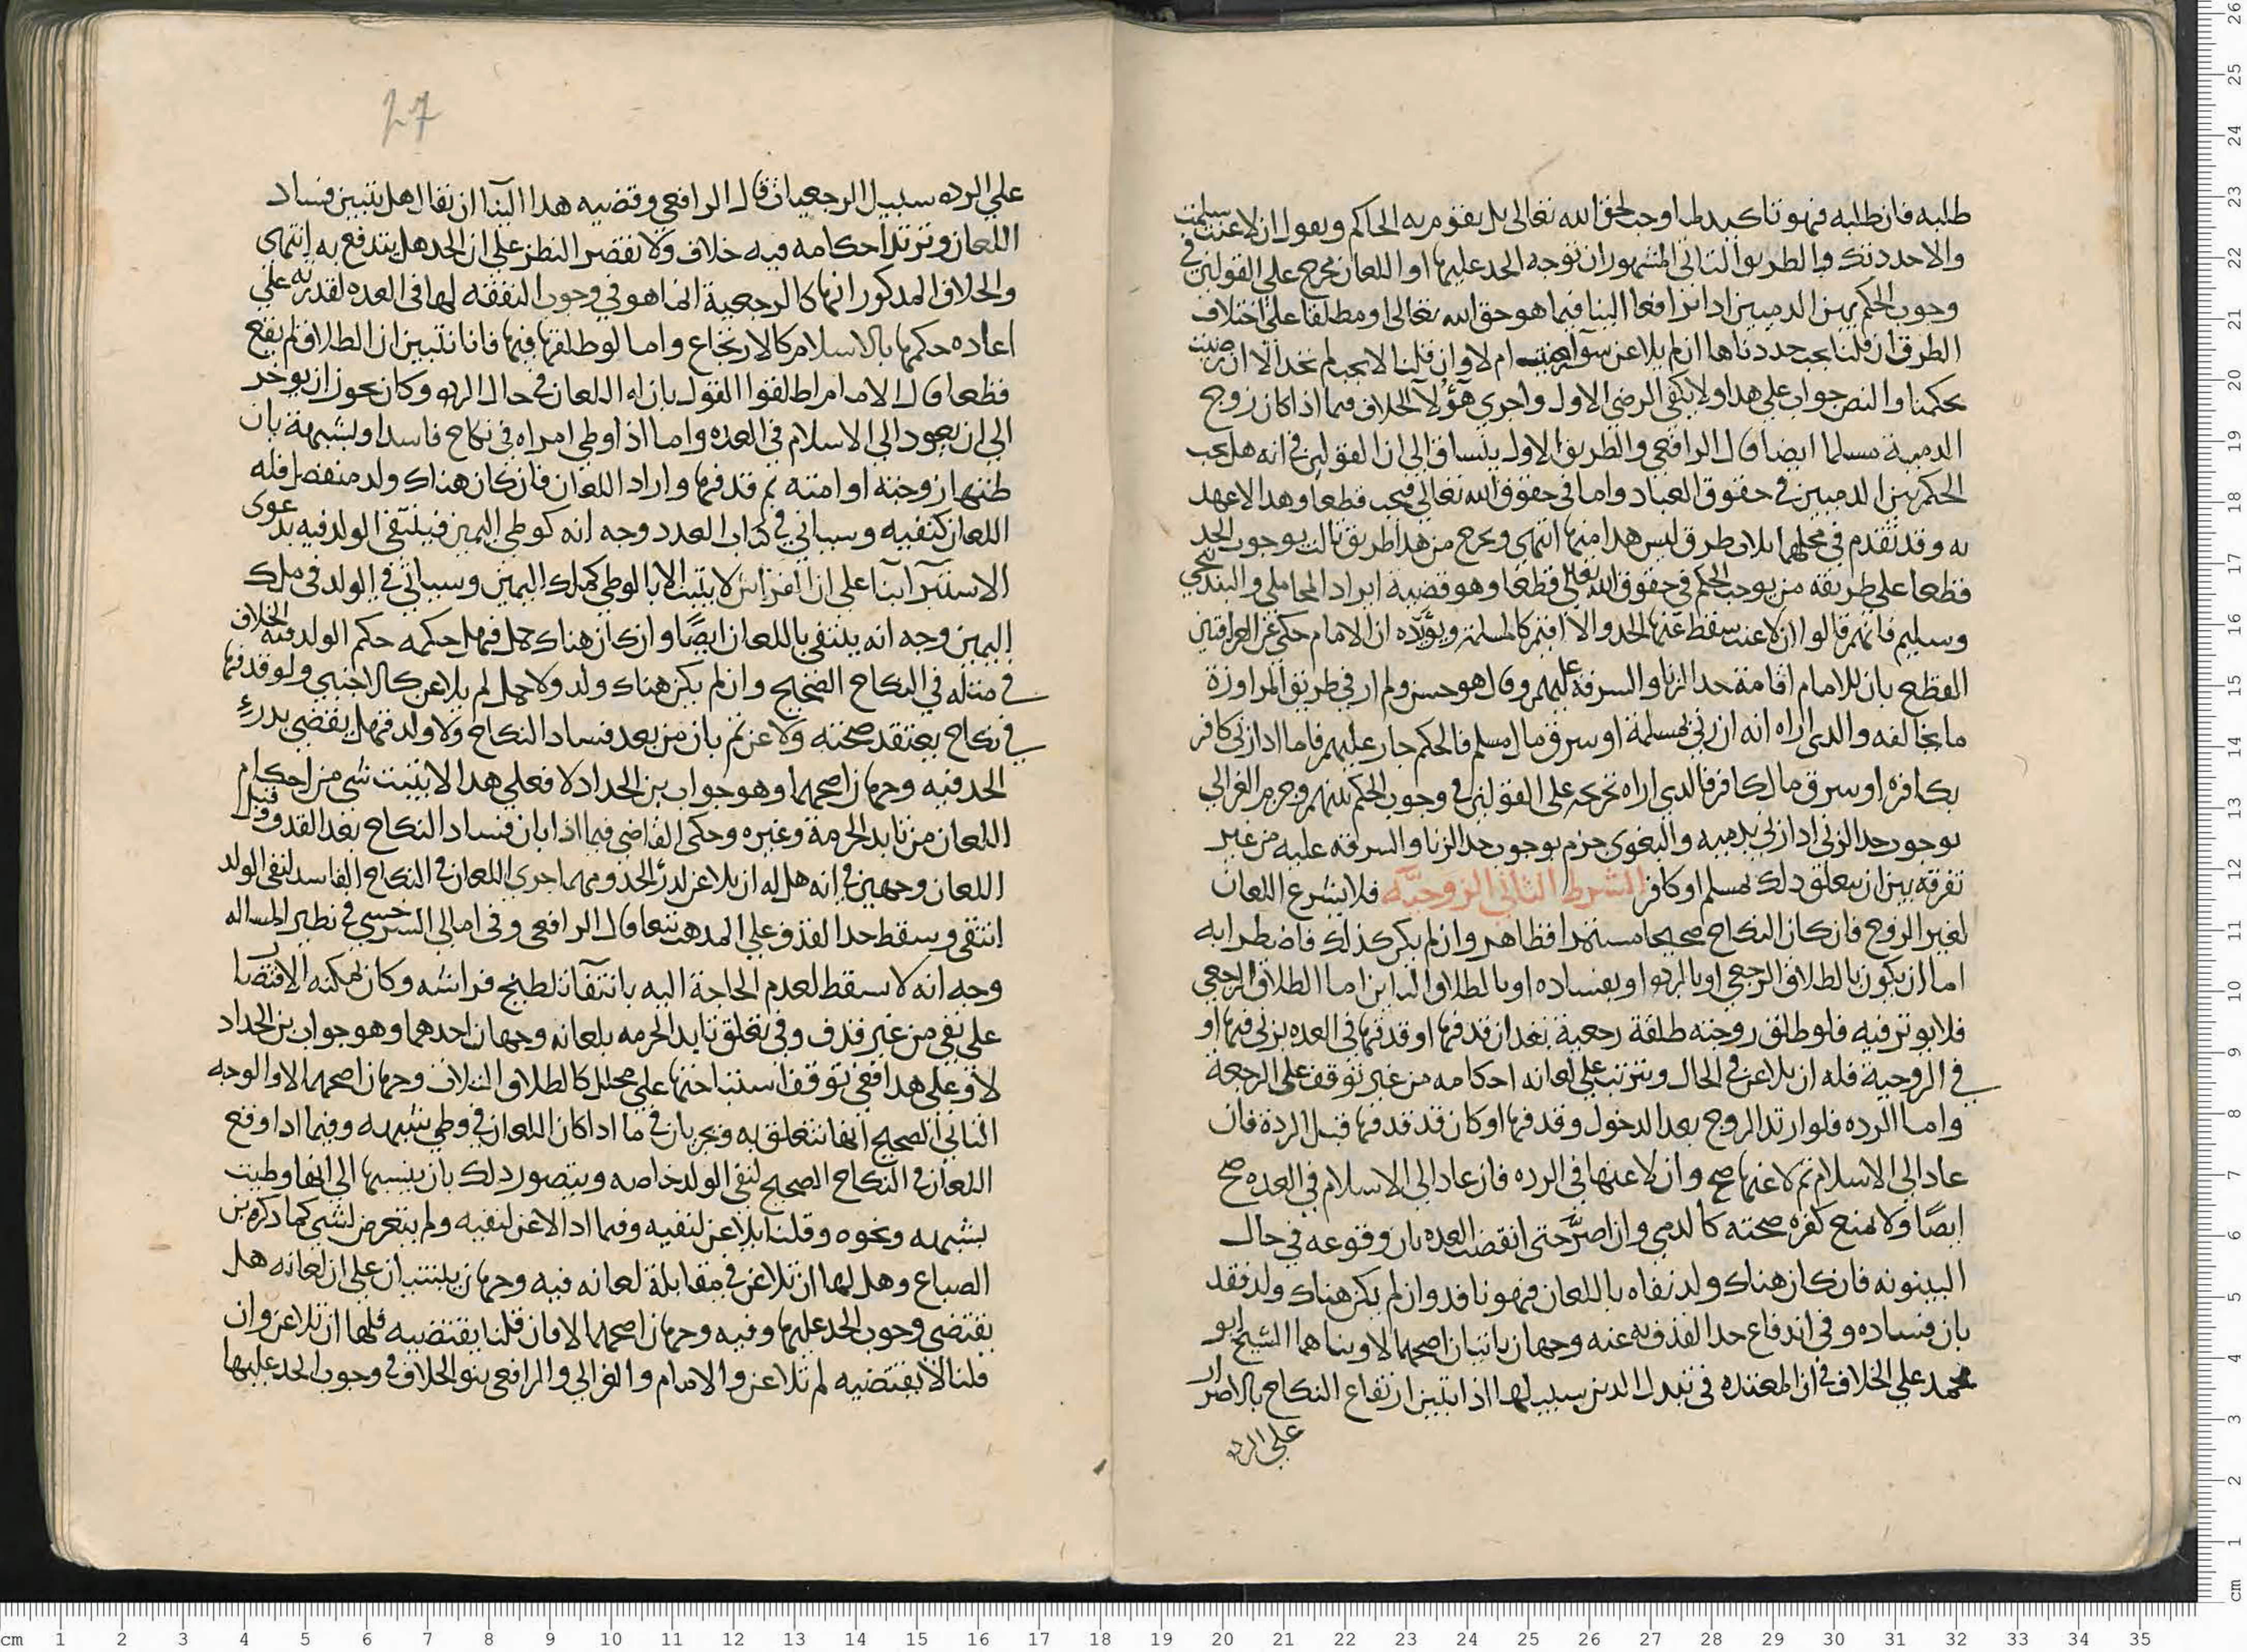 طلبه فان طلبه فهو تاكيد لما وجب لحق الله تعالى بل يقوم به الحاكم ويقول ان لاعنت سلمت
والا حددتك والطريق الثاني المشهور ان توجه الحد عليها او اللعان مخرج على القولين في
وجوب الحكم بين الدميين ادا ترافعا الينا فيما هو حق الله تعالى او مطلقا على اختلاف
الطرق ان قلنا يجب حددناها ان لم تلاعن سوآ رضيت ام لا وان قلنا لا يجب لم تحد الا ان رضيت
بحكمنا والنص جواب على هدا ولا يكفي الرضى الاول واجري هؤلآ الخلاف فيما اذا كان زوج
الدمية مسلما ايضا قال الرافعي والطريق الاول ينساق الى ان القولين في انه هل يجب
الحكم بين الدميين في حقوق العباد واما في حقوق الله تعالى فيجب قطعا وهدا لا عهد
به وقد تقدم في محلها ثلاث طرق ليس هدا منها انتهى ويخرج من هدا طريق ثالث بوجوب الحد
قطعا على طريقه من يوجب الحكم في حقوق الله تعالى قطعا وهو قضية ايراد المحاملي والبندنيجي
وسليم فانهم قالوا ان لاعنت سقط عنها الحد والا اقيم كالمسلمة ويؤيده ان الامام حكى عن العراقيين
القطع بان للامام اقامة حد الزنا والسرقة عليهم وقال هو حسن ولم ار في طريق المراوزة
ما يخالفه والدي اراه انه ان زنى بمسلمة او سرق مال مسلم فالحكم جار عليهم فاما ادا زنى كافر
بكافره او سرق مال كافر فالدي اراه تخريجه على القولين في وجوب الحكم بينهم وجزم الغزالي
بوجوب حد الزنى ادا زنى بدميه والبغوي جزم بوجوب حد الزنا والسرقه عليه من غير
تفرقه بين ان يتعلق دلك بمسلم او كافر الشرط الثاني الزوجيّه فلا يشرع اللعان
لغير الزوج فان كان النكاح صحيحا مستمرا فظاهر وان لم يكن كذلك فاضطرابه
اما ان يكون بالطلاق الرجعي او بالرده او بفساده او بالطلاق البائن اما الطلاق الرجعي
فلا يوثر فيه فلو طلق زوجته طلقة رجعية بعد ان قدفها او قدفها في العده بزنى فيها او
في الزوجية فله ان يلاعن في الحال ويترتب على لعانه احكامه من غير توقف على الرجعة
واما الرده فلو ارتد الزوج بعد الدخول وقدفها او كان قد قدفها قبل الردة فان
عاد الى الاسلام ثم لاعنها صح وان لاعنها في الرده فان عاد الى الاسلام في العده صح
ايضًا ولا يمنع كفره صحته كالدمي وان اصرّ حتى انقضت العده بان وقوعه في حال
البينونه فان كان هناك ولد نفاه باللعان فهو نافد وان لم يكن هناك ولد فقد
بان فساده وفي اندفاع حد القذف به عنه وجهان ياتيان اصحهما لا وبناهما الشيخ ابو
محمد على الخلاف في ان المعتده في تبدل الدين سبيلها اذا تبين ارتفاع النكاح بالاصرار
على الرده
27
على الرده سبيل الرجعيات قال الرافعي وقضيه هدا البنآ ان يقال هل يتبين فساد
اللعان وترتد احكامه فيه خلاف ولا نقصر النظر على ان الحد هل يندفع به انتهى
والخلاف المدكور انها كالرجعية انما هو في وجوب النفقه لها في العده لقدرته على
اعاده حكمها بالاسلام كالارتجاع واما لو طلقها فيها فانا نتبين ان الطلاق لم يقع
قطعا قال الامام اطلقوا القول بان له اللعان في حال الرده وكان يجوز ان يوخر
الى ان يعود الى الاسلام في العده واما اذا وطي امراه في نكاح فاسد او بشبهة بان
ظنها زوجته او امته ثم قدفها واراد اللعان فان كان هناك ولد منفصل فله
اللعان كنفيه وسياتي في كتاب العدد وجه انه كوطي اليمين فينتفي الولد فيه بدعوى
الاستبرآ بنا على ان الفراش لا يثبت الا بالوطي كملك اليمين وسياتي في الولد في ملك
اليمين وجه انه ينتفي باللعان ايضًا وان كان هناك حمل فهل حكمه حكم الولد فيه الخلاف
في مثله في النكاح الصحيح وان لم يكن هناك ولد ولا حمل لم يلاعن كالاجنبي ولو قدفها
في نكاح يعتقد صحته ولاعن ثم بان من بعد فساد النكاح ولا ولد فهل يقضى بدرء
الحد فيه وجهان اصحهما وهو جواب بن الحداد لا فعلى هدا لا يثبت شي من احكام
اللعان من تابد الحرمة وغيره وحكى القاضي فيما اذا بان فساد النكاح بعد القدف وقبل
اللعان وجهين في انه هل له ان يلاعن لدرء الحد ومهما جرى اللعان في النكاح الفاسد لنفي الولد
انتفى وسقط حد القذف على المدهب تبعا قال الرافعي وفي امالي السرخسي في نظير المساله
وجه انه لا يسقط لعدم الحاجة اليه بانتفآ تلطخ فراشه وكان يمكنه الاقتصار
على نفي من غير قذف وفي تعلق تابد الحرمه بلعانه وجهان احدهما وهو جواب بن الحداد
لا وعلى هدا ففي توقف استباحتها على محلل كالطلاق الثلاث وجهان اصحهما لا والوجه
الثاني الصحيح انها تتعلق به ويجريان في ما ادا كان اللعان في وطي بشبهه وفيما ادا وقع
اللعان في النكاح الصحيح لنفي الولد خاصه ويتصور دلك بان ينسبها الى انها وطيت
بشبهه ونحوه وقلنا يلاعن لنفيه وفيما ادا لاعن لنفيه ولم يتعرض لشي كما دكره بن
الصباغ وهل لها ان تلاعن في مقابلة لعانه فيه وجهان يلتفتان على ان لعانه هل
يقتضي وجوب الحد عليها وفيه وجهان اصحهما لا فان قلنا يقتضيه فلها ان تلاعن وان
قلنا لا يقتضيه لم تلاعن والامام والغزالي والرافعي بنوا الخلاف في وجوب الحد عليها